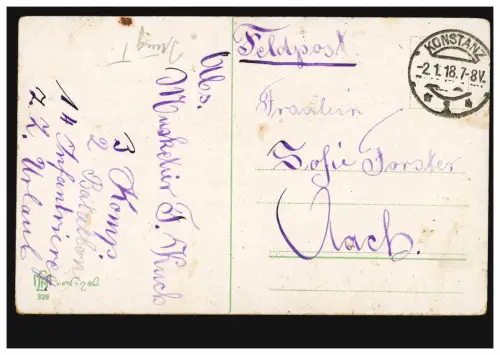 Feldpost.
KONSTANZ
-2.1.18.7-8V.
* 1 *
Fräulein
Sofie Forster
Aach.
Abs.
Musketir F. Kuch
3 Komp
2 Batallion
14 Infantrie
z. Z. Urlaub
329